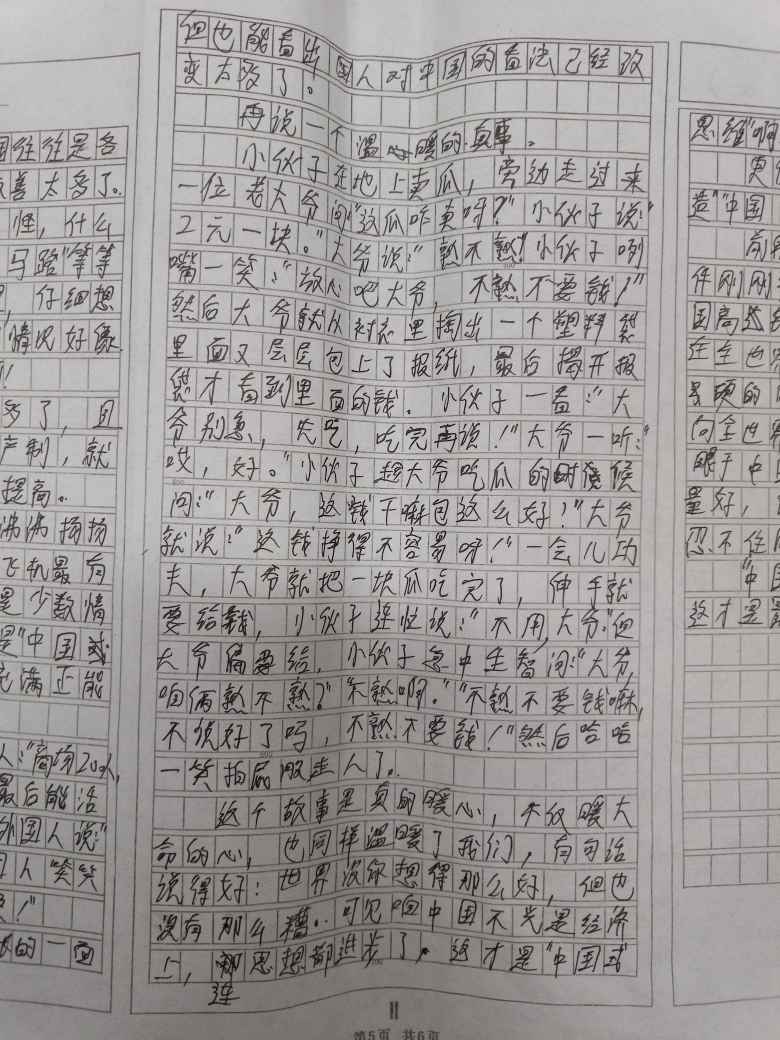 国往往是各
善太多了。
怪，什么
马路"等等
，仔细想
情况好像
！
多了，且
产制，就
提高。
沸沸扬扬
飞机最有
是少数情
是"中国式
充满正能
人："商场20%，
最后能活
外国人说："
人笑笑
！"
的一面
但也能看出国人对中国的看法已经改
变太多了。
再说一个温心暖的真事。
小伙子在地上卖瓜，旁边走过来
一位老大爷问："这瓜咋卖呀？"小伙子说："
2元一块。"大爷说："熟不熟？"小伙子咧
嘴一笑："放心吧大爷，不熟不要钱！"
然后大爷就从衬衣里掏出一个塑料袋
里面又层层包上了报纸，最后揭开报
袋才看到里面的钱。小伙子一看："大
爷别急，先吃，吃完再说！"大爷一听："
哎，好。"小伙子趁大爷吃瓜的时候
问："大爷，这钱干嘛包这么好！"大爷
就说："这钱挣得不容易呀！"一会儿功
夫，大爷就把一块瓜吃完了，伸手就
要给钱，小伙子连忙说："不用，大爷。"但
大爷偏要给，小伙子急中生智问："大爷，
咱俩熟不熟？""不熟啊。""不熟不要钱嘛，
不说好了吗，不熟不要钱！"然后哈哈
一笑拍屁股走人了。
这个故事是真的暖心，不仅暖大
爷的心，也同样温暖了我们，有句话
说得好：世界没你想得那么好，但也
没有那么糟。可见咱中国不光是经济
上，连思想都进步了。这才是"中国式
II
第5页 共6页
思维"啊
更
造"中国
前
件刚刚
国高
生也
景颇的
向全世界
眼于中
量好，
忍不住
"中国
这才是